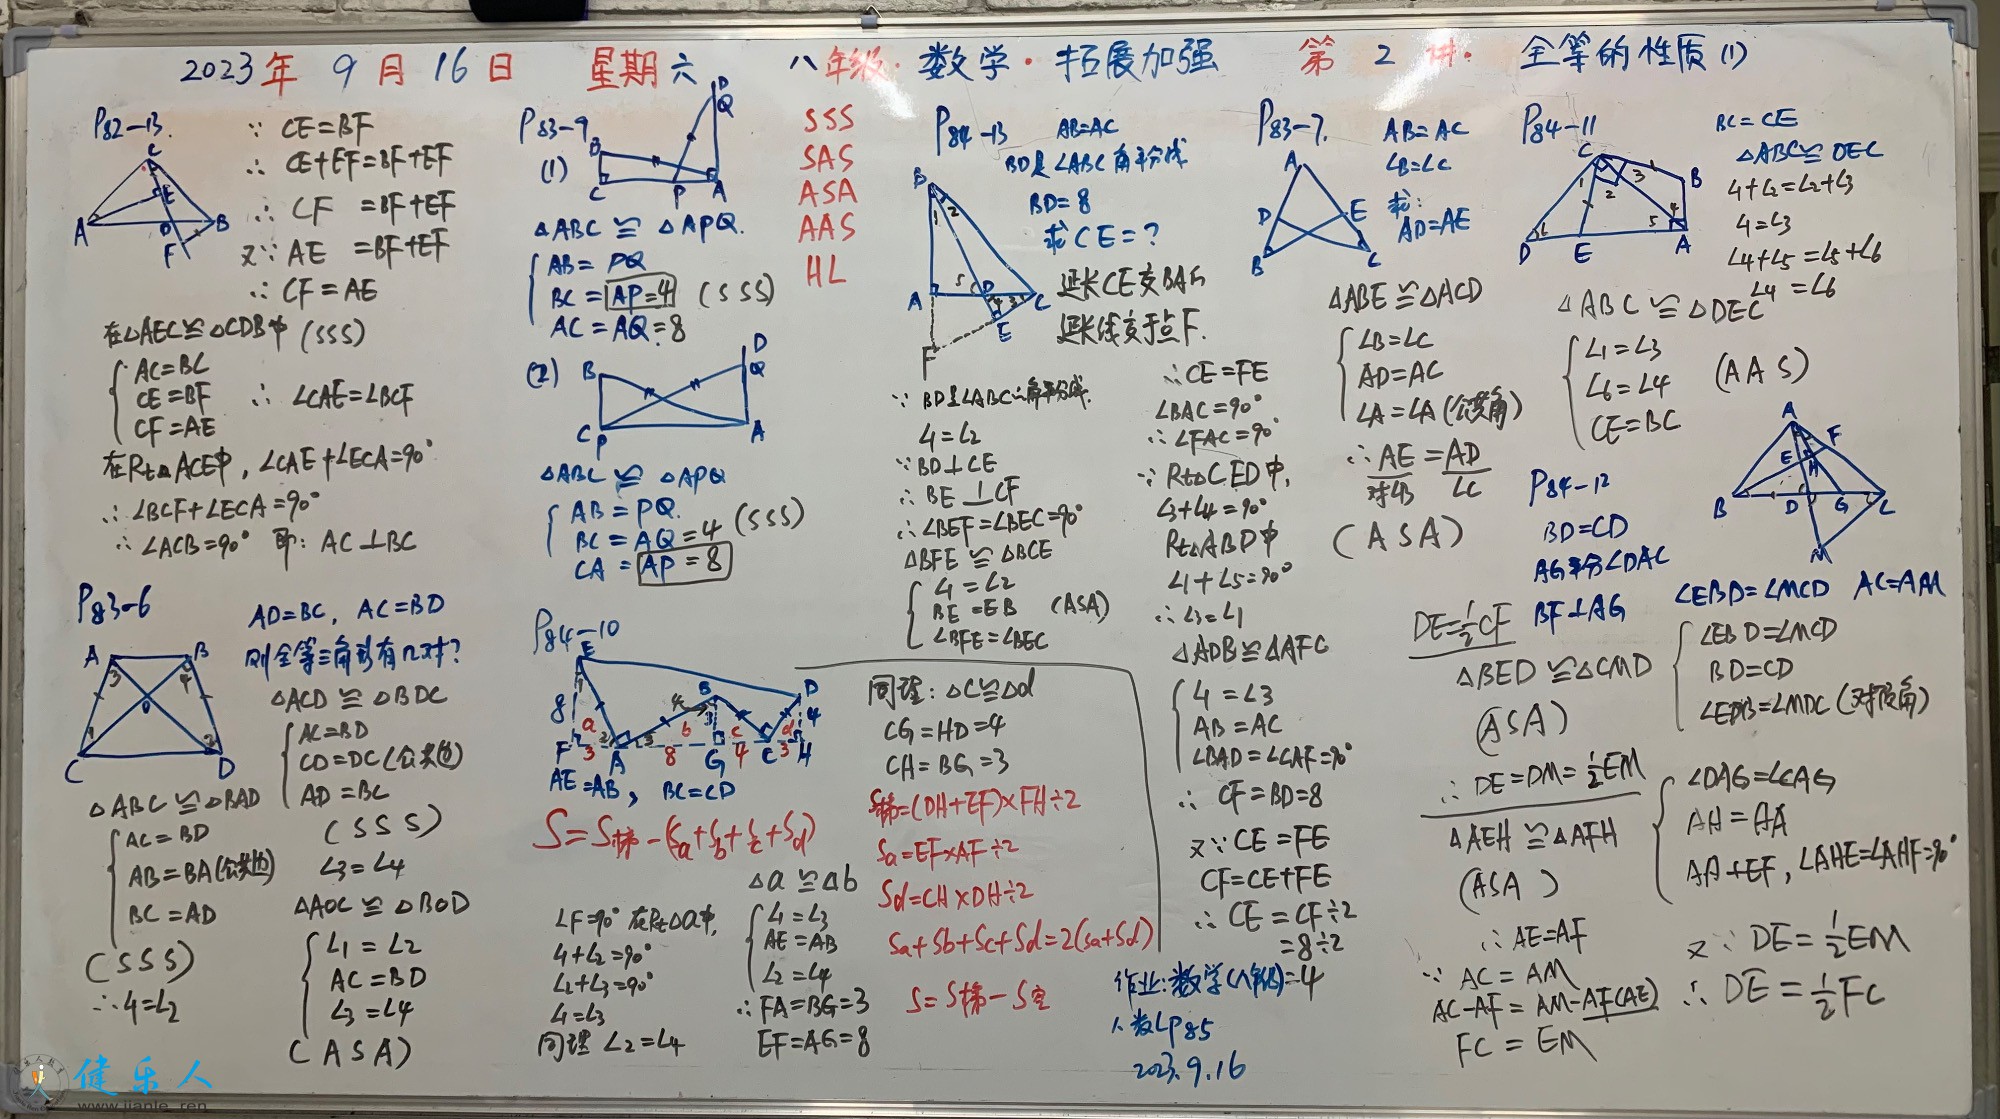 2023年9月16日 星期六 八年级·数学·拓展加强 第2讲· 全等的性质(1)
P82-13.
C
E
A
D
B
F
∵ CE=BF
∴ CE+EF=BF+EF
∴ CF =BF+EF
又∵ AE =BF+EF
∴ CF=AE
在△AEC≌△CDB中 (SSS)
AC=BC
CE=BF ∴ ∠CAE=∠BCF
CF=AE
在Rt△ACE中, ∠CAE+∠ECA=90°
∴ ∠BCF+∠ECA=90°
∴ ∠ACB=90° 即: AC⊥BC
P83-6
AD=BC, AC=BD
则全等三角形有几对?
A B
3 4
O
1 2
C D
△ACD ≌ △BDC
AC=BD
CD=DC(公共边)
AD=BC
(SSS)
∠3=∠4
△ABC ≌ △BAD
AC=BD
AB=BA(公共边)
BC=AD
(SSS)
∴∠1=∠2
△AOC ≌ △BOD
∠1=∠2
AC=BD
∠3=∠4
(ASA)
P83-9
(1)
D
Q
B
C P A
△ABC ≌ △APQ.
AB= PQ
BC=AP=4 (SSS)
AC=AQ=8
(2)
B D
Q
C P A
△ABC ≌ △APQ
AB=PQ.
BC=AQ=4 (SSS)
CA=AP=8
P84-10
E
8 a b c d 4
B D
F 3 A 8 G 4 C 3 H
AE=AB, BC=CD
S=S梯-(Sa+Sb+Sc+Sd)
△a ≌ △b
∠F=90° 在Rt△a中,
∠1+∠2=90°
∠2+∠3=90°
∠1=∠3
同理 ∠2=∠4
∠1=∠3
AE=AB
∠2=∠4
∴FA=BG=3
EF=AG=8
SSS
SAS
ASA
AAS
HL
同理: △c≌△d
CG=HD=4
CH=BG=3
S梯=(DH+EF)×FH÷2
Sa=EF×AF÷2
Sd=CH×DH÷2
Sa+Sb+Sc+Sd=2(Sa+Sd)
S=S梯-S空
P84-13
AB=AC
BD是∠ABC角平分线
BD=8
求CE=?
延长CE交BA的
延长线交于点F.
B
1 2
A 5 D 4 3 C
E
F
∵ BD是∠ABC的角平分线
∠1=∠2
∵BD⊥CE
∴ BE⊥CF
∴∠BEF=∠BEC=90°
△BFE ≌ △BCE
∠1=∠2
BE=EB (ASA)
∠BFE=∠BEC
∴CE=FE
∠BAC=90°
∴∠FAC=90°
∵ Rt△CED中,
∠3+∠4=90°
Rt△ABD中
∠1+∠5=90°
∴∠3=∠1
△ADB≌△AFC
∠1=∠3
AB=AC
∠BAD=∠CAF=90°
∴ CF=BD=8
又∵CE=FE
CF=CE+FE
∴ CE=CF÷2
=8÷2
=4
作业:数学(八年级)
八数LP85
2023.9.16
P83-7.
AB=AC
∠B=∠C
求:
AD=AE
A
D E
B C
△ABE≌△ACD
∠B=∠C
AD=AC
∠A=∠A(公共角)
∴AE=AD
对∠B ∠C
(ASA)
P84-11
BC=CE
△ABC≌DEC
∠1+∠2=∠2+∠3
∠1=∠3
∠4+∠5=∠5+∠6
∠4=∠6
C
1 2 3 B
4
6 5
D E A
△ABC ≌ △DEC
∠1=∠3
∠6=∠4 (AAS)
CE=BC
P84-12
BD=CD
AG平分∠DAC
BF⊥AG
A
F
E H
B D G C
M
∠EBD=∠MCD AC=AM
DE=½CF
△BED≌△CMD
(ASA)
∠EBD=∠MCD
BD=CD
∠EDB=∠MDC(对顶角)
∴ DE=DM=½EM
△AEH≌△AFH
(ASA)
∠DAG=∠CAG
AH=AA
AA+EF, ∠AHE=∠AHF=90°
∴AE=AF
∵ AC=AM
AC-AF=AM-AF(AE)
FC=EM
又∵ DE=½EM
∴ DE=½FC
健乐人
www.jianle.ren